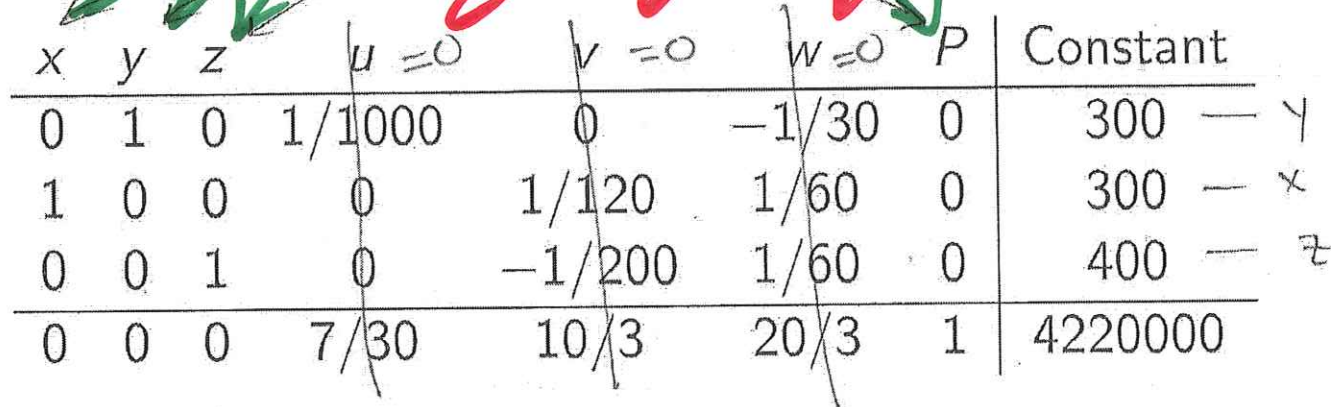 x y z u =0 v =0 w =0 P Constant
0 1 0 1/1000 0 −1/30 0 300 — y
1 0 0 0 1/120 1/60 0 300 — x
0 0 1 0 −1/200 1/60 0 400 — z
0 0 0 7/30 10/3 20/3 1 4220000